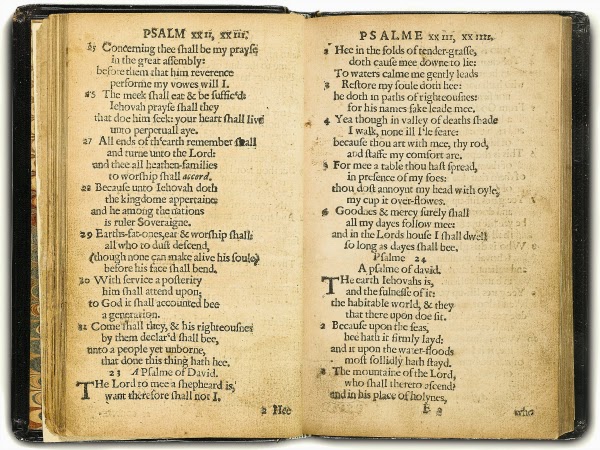 PSALM xxii, xxiii.
25 Concerning thee shall be my prayse
in the great assembly:
before them that him reverence
performe my vowes will I.
The meek shall eat & be suffic'd:
Iehovah prayse shall they
that doe him seek: your heart shall live
unto perpetuall aye.
27 All ends of th'earth remember shall
and turne unto the Lord:
and thee all heathen-families
to worship shall accord.
28 Because unto Iehovah doth
the kingdome appertaine:
and he among the nations
is ruler Soveraigne.
29 Earths-fat-ones, eat & worship shall:
all who to dust descend,
(though none can make alive his soule)
before his face shall bend.
30 With service a posterity
him shall attend upon;
to God it shall accounted bee
a generation.
31 Come shall they, & his righteousnes
by them declar'd shall bee,
unto a people yet unborne,
that done this thing hath hee.
23 A Psalme of David.
THe Lord to mee a shepheard is,
want therefore shall not I.
2 Hee
PSALME xxiii, xxiiii.
2 Hee in the folds of tender-grasse,
doth cause mee downe to lie:
To waters calme me gently leads
3 Restore my soule doth hee:
he doth in paths of righteousnes:
for his names sake leade mee.
4 Yea though in valley of deaths shade
I walk, none ill I'le feare:
because thou art with mee, thy rod,
and staffe my comfort are.
5 For mee a table thou hast spread,
in presence of my foes:
thou dost annoynt my head with oyle,
my cup it over-flowes.
6 Goodnes & mercy surely shall
all my dayes follow mee:
and in the Lords house I shall dwell
so long as dayes shall bee.
Psalme 24
A psalme of david.
THe earth Iehovahs is,
and the fulnesse of it:
the habitable world, & they
that there upon doe sit.
2 Because upon the seas,
hee hath it firmly layd:
and it upon the water-floods
most sollidly hath stayd.
3 The mountaine of the Lord,
who shall thereto ascend?
and in his place of holynes,
E 2 who